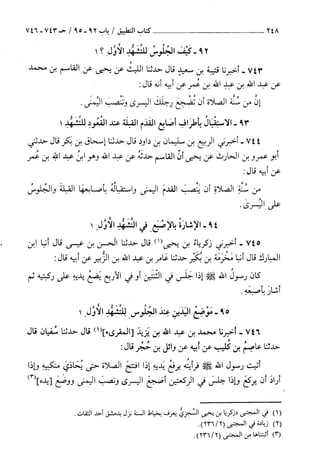 ٢٤٨ ـــــــ كتاب التطبيق / باب ٩٢ - ٩٥ / حـ ٧٤٣ - ٧٤٦
٩٢ - كَيْفَ الجُلُوس للتَّشهُّدِ الأوَّلِ؟ ١
٧٤٣ - أخبرنا قتيبةُ بن سعيدٍ قال حدثنا الليثُ عن يحيى عن القاسم بن محمد
عن عبد الله بن عبد الله بن عُمر عن أبيه أنه قال:
إنَّ من سُنَّةِ الصلاة أن تُضْجِعَ رجلَكَ اليسرى وتَنْصِبَ اليُمنى.
٩٣ - الاستِقْبَالُ بأطرافِ أصابع القَدَمِ القِبلةَ عندَ القُعودِ للتَّشهُّدِ ١
٧٤٤ - أخبرني الربيع بن سليمان بن داودَ قال حدثنا إسحاق بن بَكْر قال حدثني
أبو عمرو بن الحارث عن يحيى أنَّ القاسم حدَّثَهُ عن عبد الله وهو ابنُ عبد الله بن عُمر
عن أبيه قال:
من سُنَّةِ الصلاةِ أن يَنْصِبَ القدمَ اليمنى واستقبالُه بأصابعها القبلةَ والجلُوسُ
على اليُسرى.
٩٤ - الإشارةُ بالإصْبَعِ في التَّشهُّدِ الأوَّلِ ١
٧٤٥ - أخبرني زكرياءُ بن يحيى (١) قال حدثنا الحسن بن عيسى قال أنبا ابن
المبارك قال أنبا مَخْرَمَة بن بُكَيْر حدثنا عامر بن عبد الله بن الزُّبير عن أبيه قال:
كان رسولُ الله ﷺ إذا جلَسَ في الثِّنْتَينِ أو في الأربَعِ يَضَعُ يديهِ على ركبتيه ثم
أشارَ بأصبعِه.
٩٥ - مَوْضِعُ اليَدَينِ عندَ الجُلُوسِ للتَّشَهُّدِ الأوَّلِ ١
٧٤٦ - أخبرنا محمد بن عبد الله بن يَزِيدَ [المقرىء] (٢) قال حدثنا سُفيان قال
حدثنا عاصِمُ بن كُليب عن أبيه عن وائل بن حُجْر قال:
أتيت رسولَ الله ﷺ فرأيتُه يرفَعُ يديهِ إذا افتتحَ الصلاةَ حتى يُحَاذي منكبيهِ وإذا
أرادَ أن يركَعَ وإذا جلَسَ في الركعتين أضجعَ اليسرى ونصَبَ اليُمنى ووضَعَ [يدَه] (٣)
(١) في المجتبى «زكريا بن يحيى السَّجْزِيُّ يعرف بخياط السنة نزل بدمشق أحد الثقات.
(٢) زيادة في المجتبى (٢٣٦/٢).
(٣) أثبتناها من المجتبى (٢٣٦/٢).